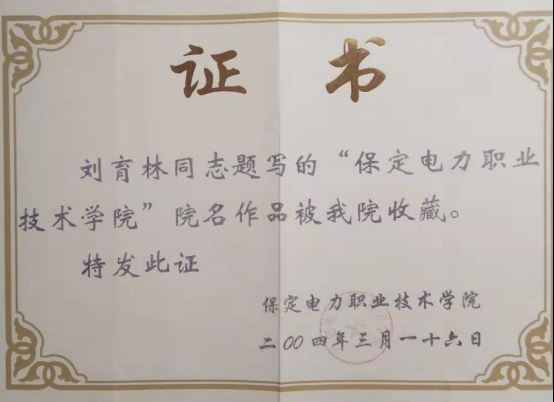 证书
刘育林同志题写的“保定电力职业
技术学院”院名作品被我院收藏。
特发此证
保定电力职业技术学院
二00四年三月一十六日